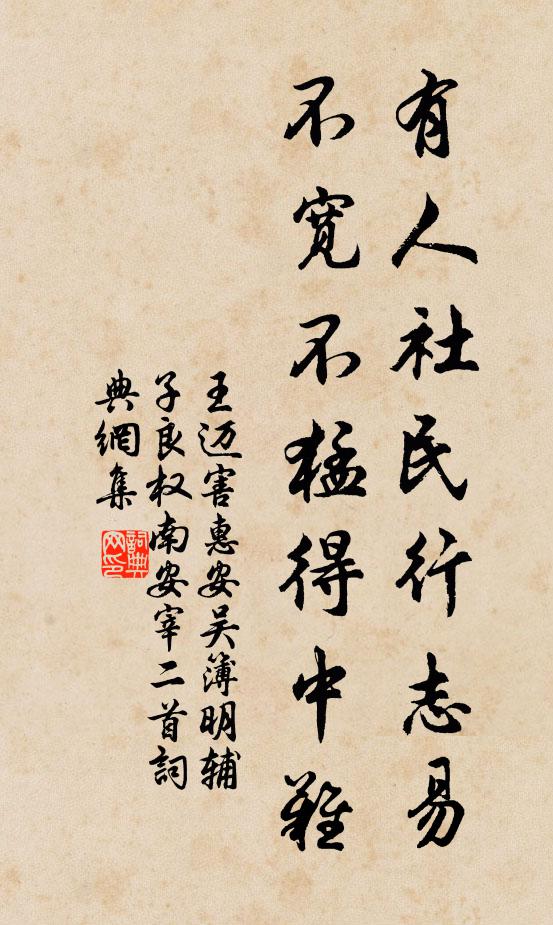 有人社民行志易
不寬不猛得中難
王迈害惠安吴簿明辅
子良权南安宰二首詞
典網集
詞典
网印